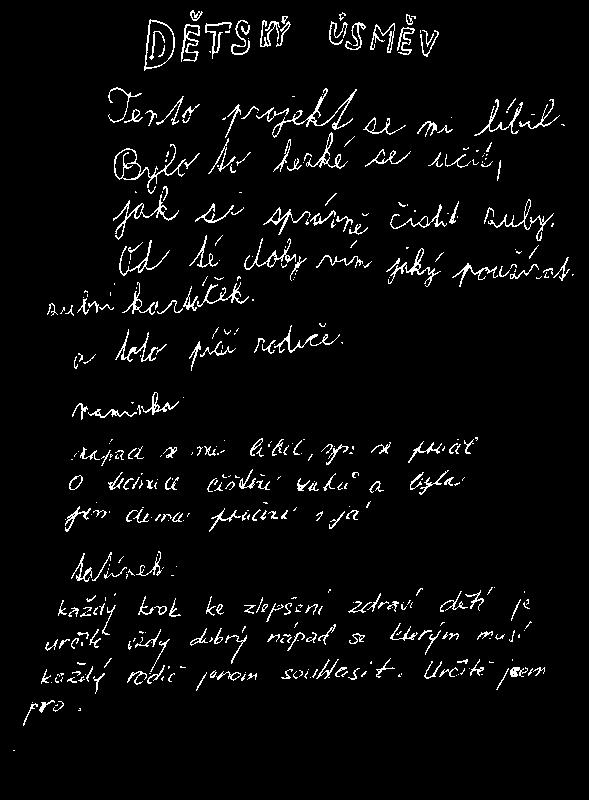 DĚTSKÝ ÚSMĚV
Tento projekt se mi líbil.
Bylo to hezké se učit,
jak si správně čistit zuby.
Od té doby vím jaký používat
zubní kartáček.
a toto píší rodiče.
maminka
nápad se mi líbil, syn se poučil
o technice čištění zubů a byla
jsem doma poučená i já
tatínek:
každý krok ke zlepšení zdraví dětí je
určitě vždy dobrý nápad se kterým musí
každý rodič jenom souhlasit. Určitě jsem
pro.